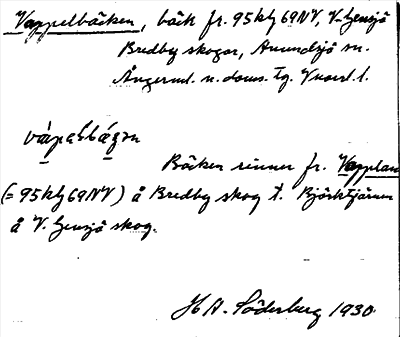 Vappelbäcken, bäck fr. 95kly69NV, V-Gensjö
Bredby skogar, Anundsjö sn.
Ångerml. n. doms. tg. Vnorrl. l.
vàpəlbäʒən
Bäcken rinner fr. Vapplan
(= 95kly69NV) å Bredby skog t. Björktjärnen
å V. Gensjö skog.
H A. Söderberg 1930